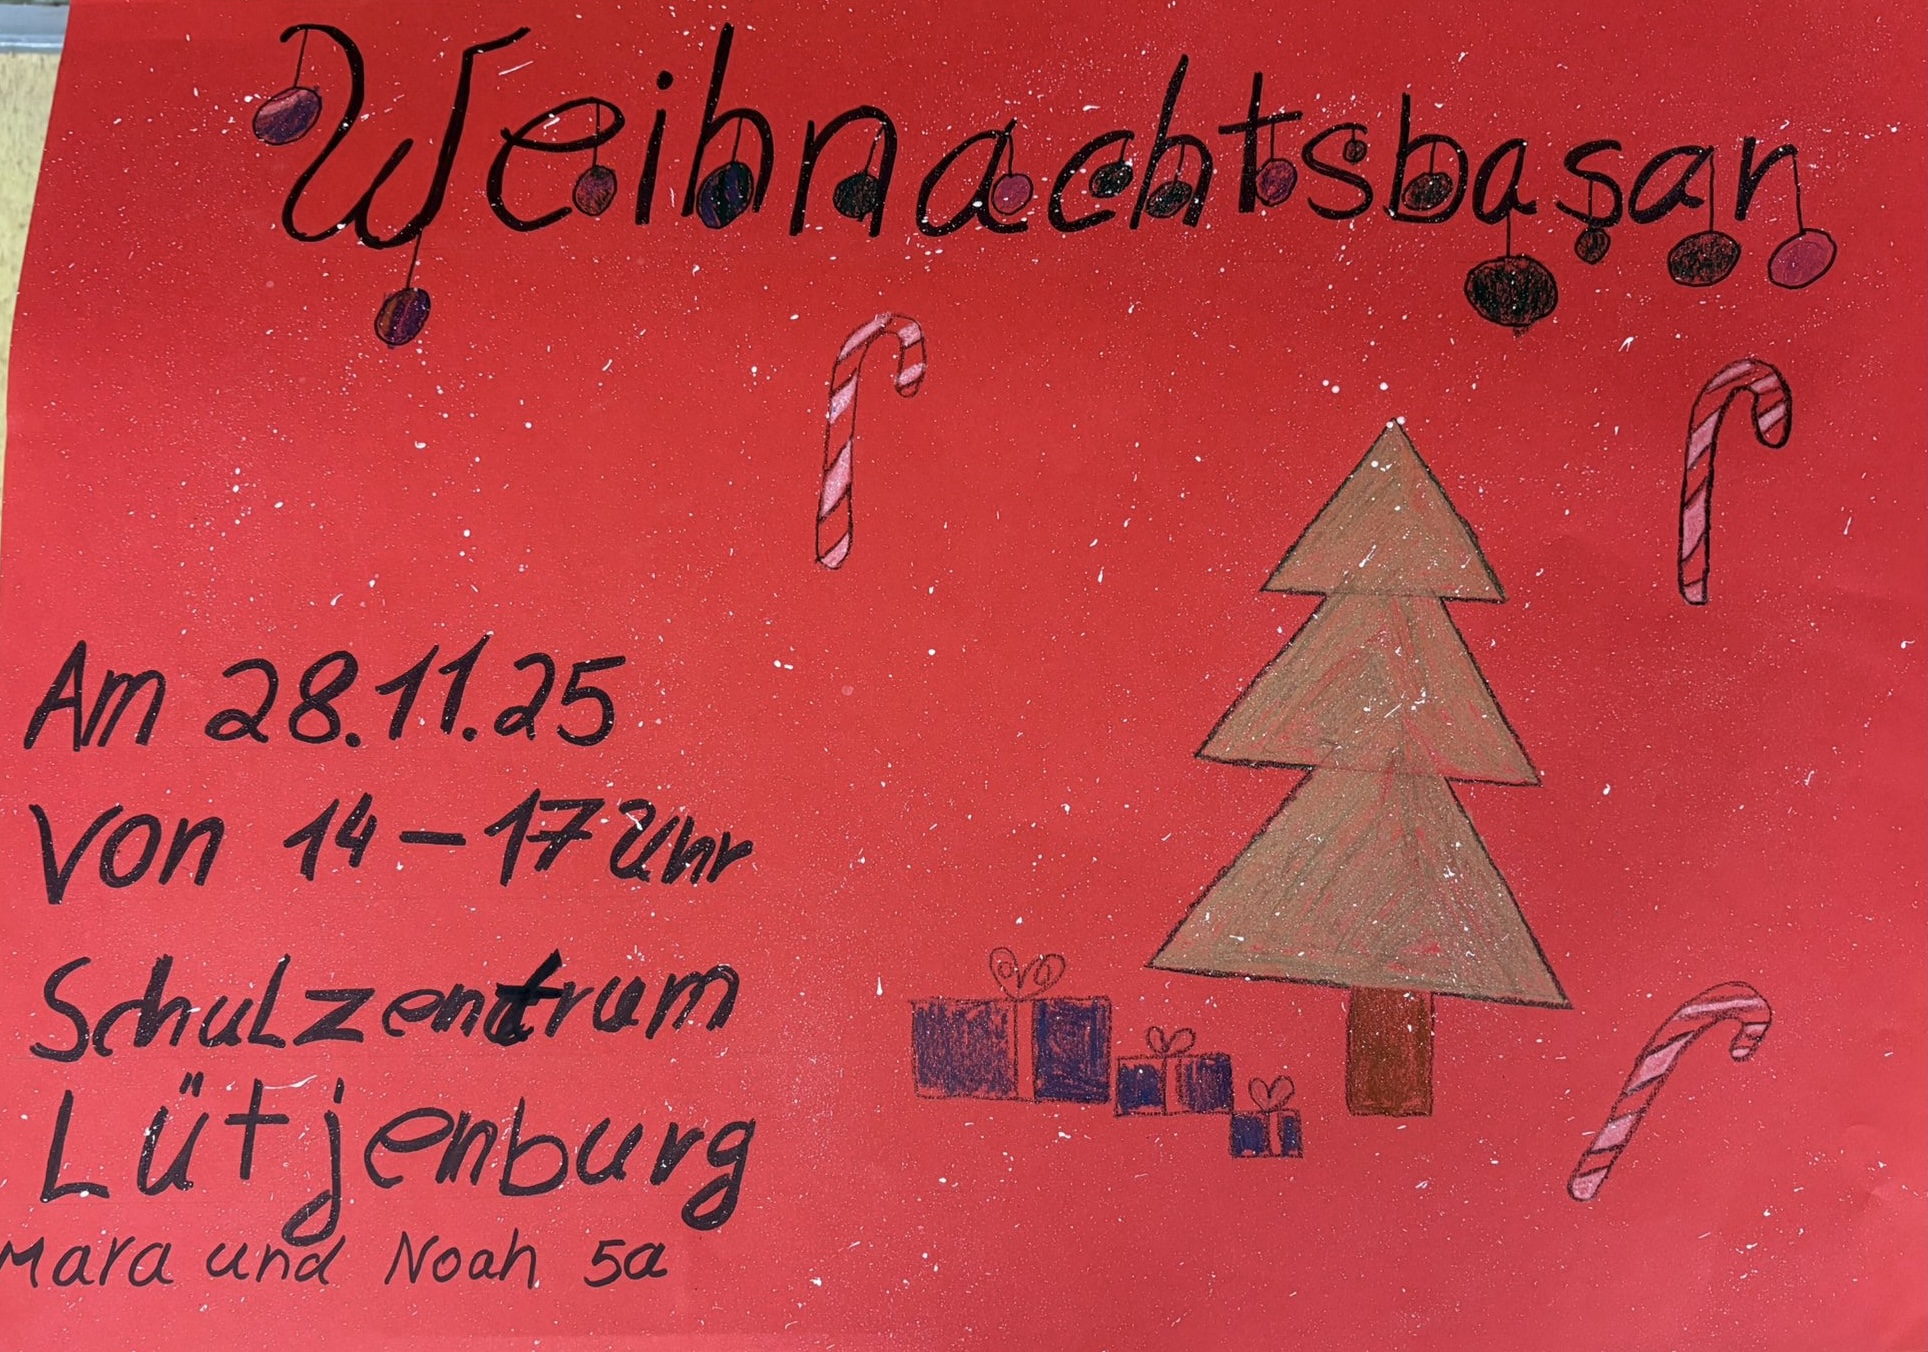 Weihnachtsbasar
Am 28.11.25
Von 14-17 Uhr
Schulzentrum
Lütjenburg
Mara und Noah 5a